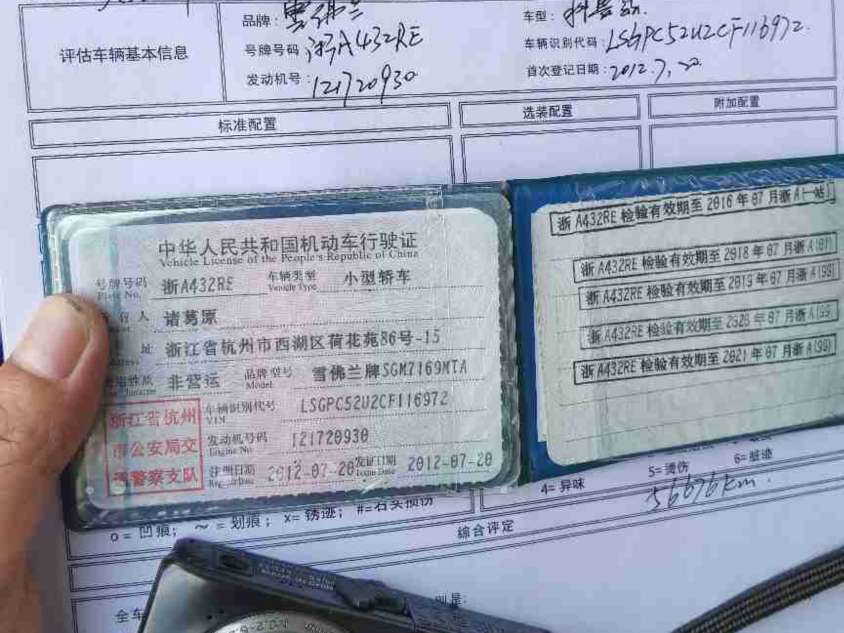 品牌：雪佛兰
车型：科鲁兹
评估车辆基本信息
号牌号码：浙A432RE
车辆识别代码：LSGPC52U2CF116972
发动机号：121720930
首次登记日期：2012.7.
标准配置
选装配置
附加配置
中华人民共和国机动车行驶证
Vehicle License of the People's Republic of China
号牌号码 浙A432RE 车辆类型 小型轿车
Plate No. Vehicle Type
有人 诸葛原
址 浙江省杭州市西湖区荷花苑86号-15
使用性质 非营运 品牌型号 雪佛兰牌SGM7169MTA
Character Model
浙江省杭州
市公安局交
通警察支队
车辆识别代号 LSGPC52U2CF116972
VIN
发动机号码 121720930
Engine No.
注册日期 2012-07-20 发证日期 2012-07-20
Register Date Issue Date
浙A432RE 检验有效期至 2016 年 07 月浙A(一站)
浙A432RE 检验有效期至 2018 年 07 月浙A(01)
浙A432RE 检验有效期至 2019 年 07 月浙A(99)
浙A432RE 检验有效期至 2020 年 07 月浙A(99
浙A432RE 检验有效期至 2021 年 07 月浙A(99)
4= 异味
5= 烫伤
6= 脏迹
56676km
o = 凹痕； ～ = 划痕； x= 锈迹； #=石头损伤
综合评定
全车
别是：